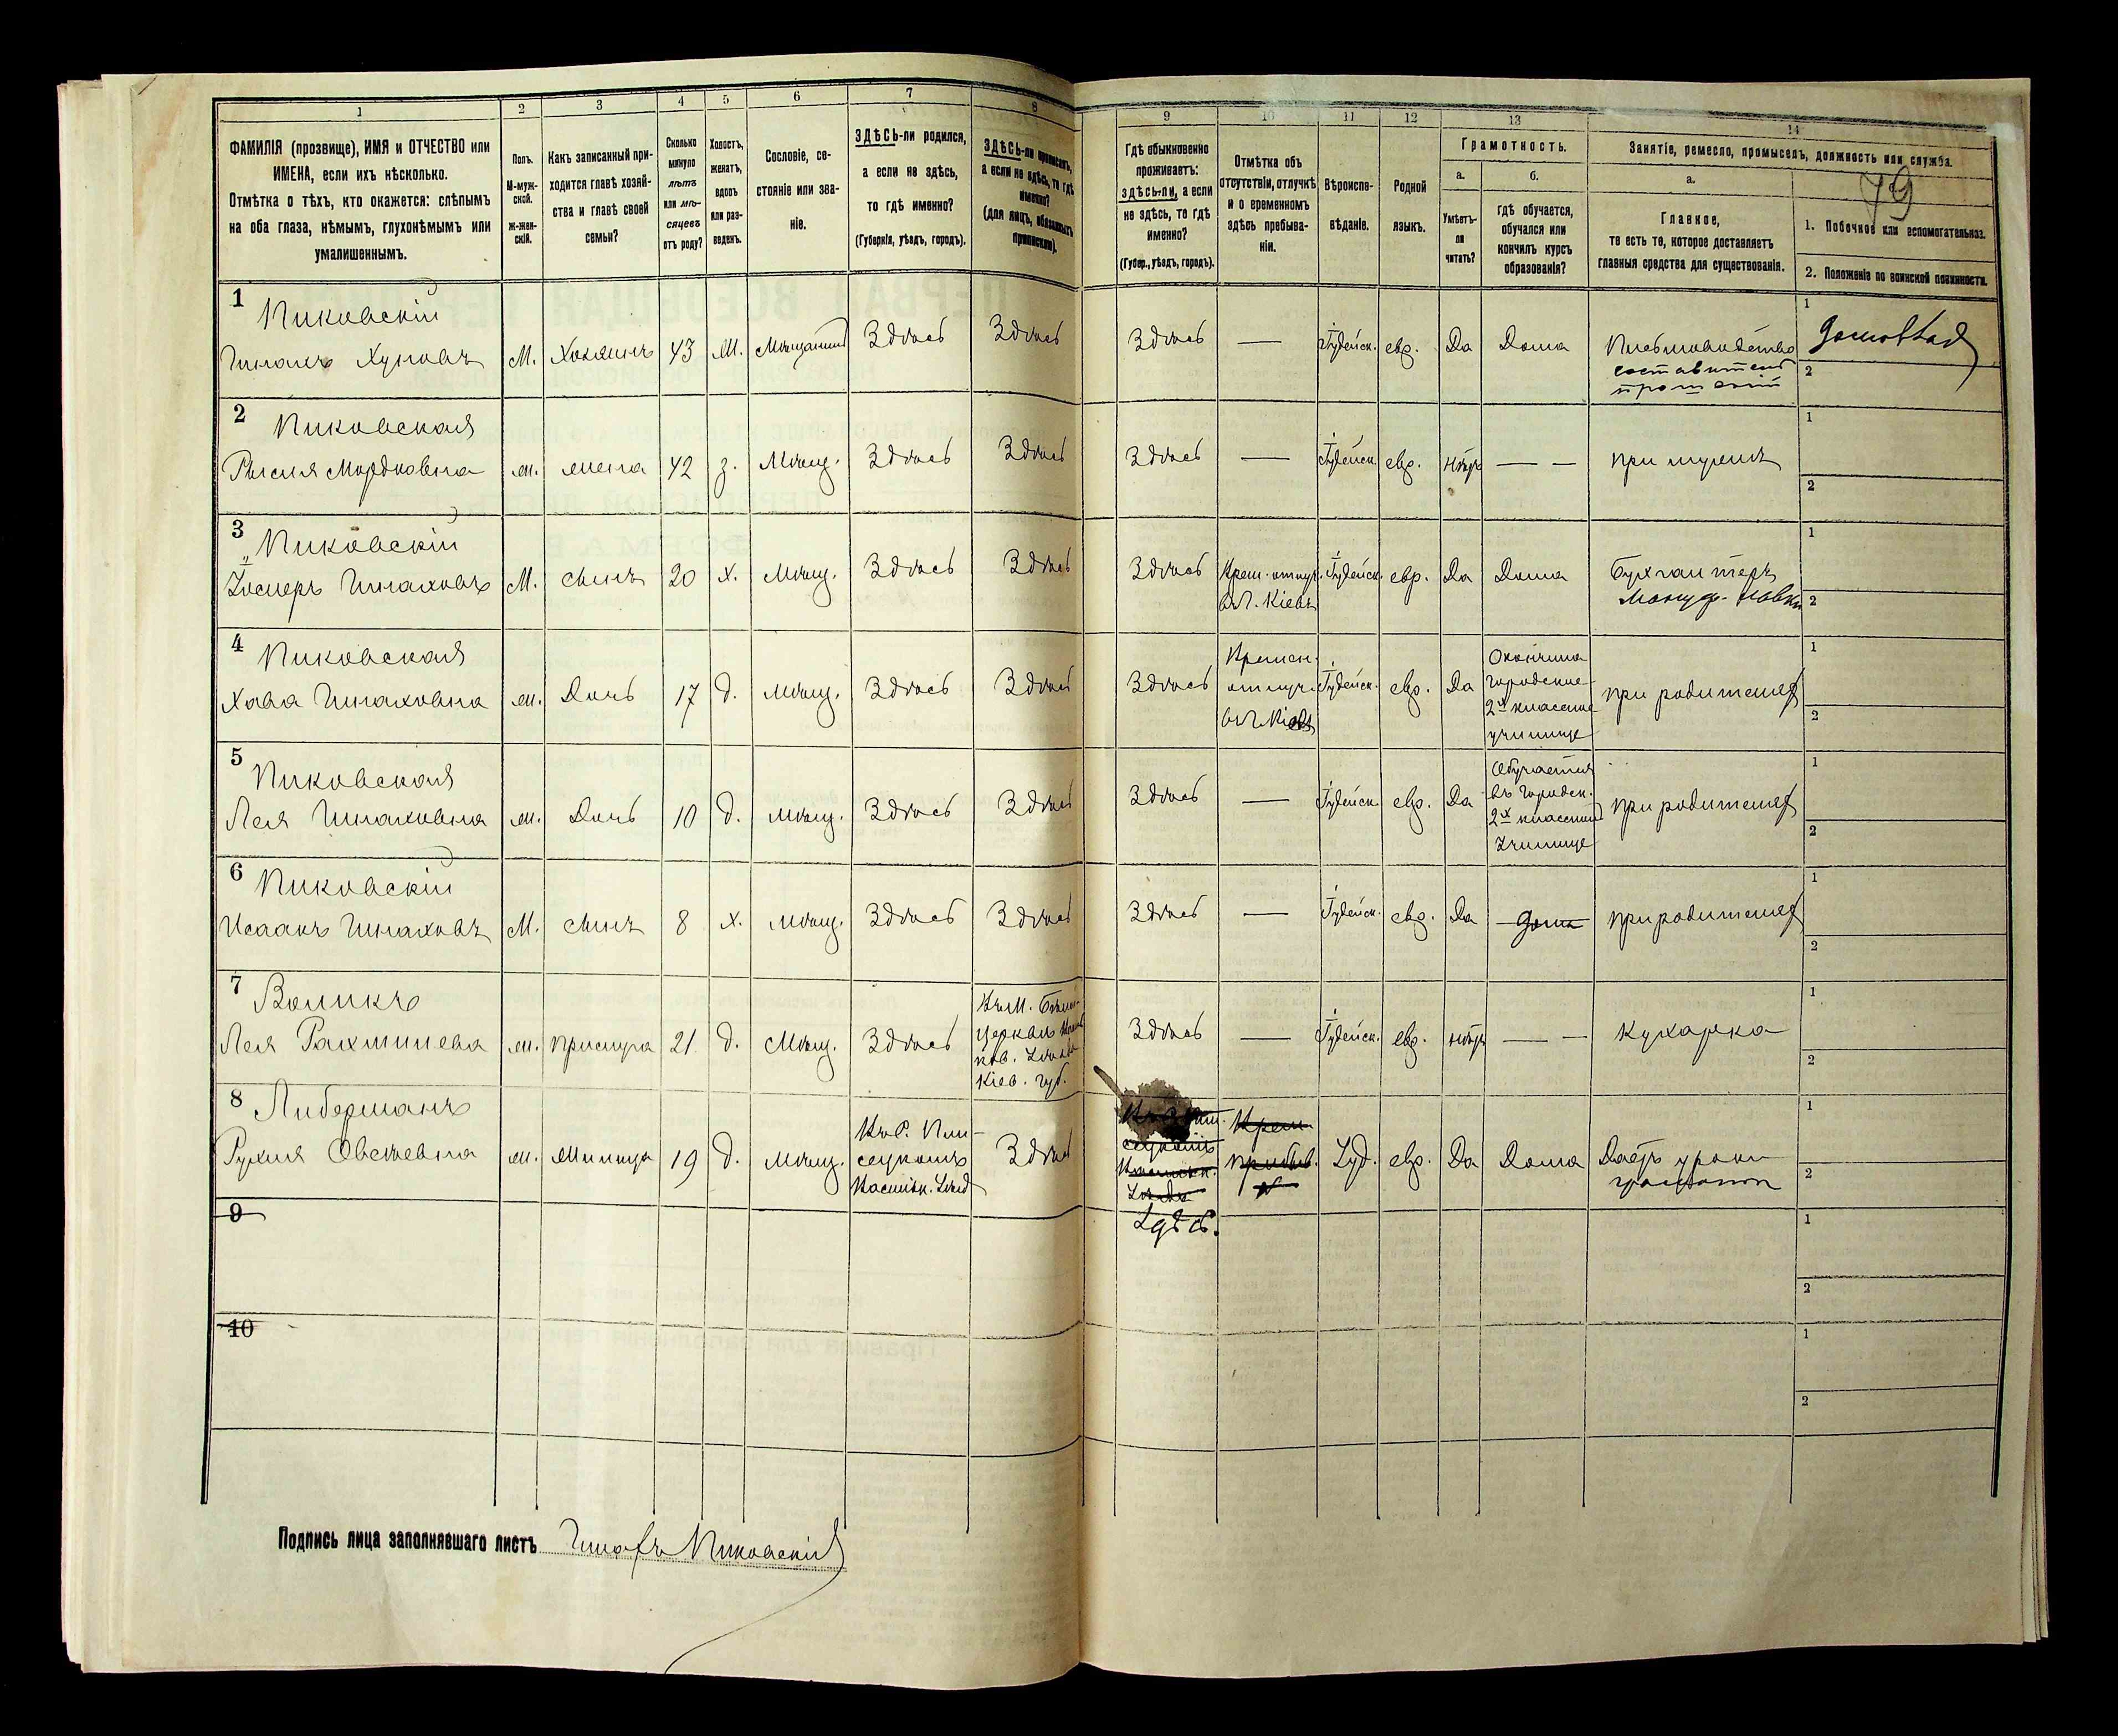 1 2 3 4 5 6 7 8 9 10 11 12 13 14
79
ФАМИЛІЯ (прозвище), ИМЯ и ОТЧЕСТВО или
ИМЕНА, если ихъ нѣсколько.
Отмѣтка о тѣхъ, кто окажется: слѣпымъ
на оба глаза, нѣмымъ, глухонѣмымъ или
умалишеннымъ.
Полъ.
М-муж-
ской.
Ж-жен-
скій.
Какъ записанный при-
ходится главѣ хозяй-
ства и главѣ своей
семьи?
Сколько
минуло
лѣтъ
или мѣ-
сяцевъ
отъ роду?
Холостъ,
женатъ,
вдовъ
или раз-
веденъ.
Сословіе, со-
стояніе или зва-
ніе.
ЗДѢСЬ-ли родился,
а если не здѣсь,
то гдѣ именно?
(Губернія, уѣздъ, городъ).
ЗДѢСЬ-ли приписанъ,
а если не здѣсь, то гдѣ
именно?
(для лицъ, обязанныхъ
припискою).
Гдѣ обыкновенно
проживаетъ:
здѣсь-ли, а если
не здѣсь, то гдѣ
именно?
(Губер., уѣздъ, городъ).
Отмѣтка объ
отсутствіи, отлучкѣ
и о временномъ
здѣсь пребыва-
ніи.
Вѣроиспо-
вѣданіе.
Родной
языкъ.
Грамотность.
а.
Умѣетъ-
ли
читать?
б.
Гдѣ обучается,
обучался или
кончилъ курсъ
образованія?
Занятіе, ремесло, промыселъ, должность или служба.
а.
Главное,
то есть то, которое доставляетъ
главныя средства для существованія.
1. Побочное или вспомогательное.
2. Положеніе по воинской повинности.
1 Пиковскій
Шлахъ Хуновъ М. Хозяинъ 43 Ж. Мѣщанинъ Здѣсь Здѣсь Здѣсь — Іудейск. евр. Да Дома Письмоводство
составитель
прошеній
1 домовлад
2
2 Пиковская
Рыся Мордковна ж. жена 42 з. Мѣщ. Здѣсь Здѣсь Здѣсь — Іудейск. евр. нѣтъ — — при мужѣ
1
2
3 Пиковскій
Іосперъ Шлаховъ М. сынъ 20 х. Мѣщ. Здѣсь Здѣсь Здѣсь Врем. отлуч. Іудейск. евр. Да Дома Бухгалтеръ
въ г. Кіевъ мануф. лавки
1
2
4 Пиковская
Хава Шлаховна ж. Дочь 17 д. Мѣщ. Здѣсь Здѣсь Здѣсь Времен.
отлуч.
въ г. Кіевъ
Іудейск. евр. Да
Окончила
городское
2х классное
училище
при родителяхъ
1
2
5 Пиковская
Лея Шлаховна ж. Дочь 10 д. Мѣщ. Здѣсь Здѣсь Здѣсь — Іудейск. евр. Да
Обучается
въ городск.
2х классном
училище
при родителяхъ
1
2
6 Пиковскій
Исаакъ Шлаховъ М. сынъ 8 х. Мѣщ. Здѣсь Здѣсь Здѣсь — Іудейск. евр. Да дома при родителяхъ
1
2
7 Воликъ
Лея Рахмилева ж. прислуга 21 д. Мѣщ. Здѣсь
Въ М. Бѣлой
Церквѣ
Кіев. губ.
Здѣсь — Іудейск. евр. нѣтъ — — Кухарка
1
2
8 Либерманъ
Рухля Овсеевна ж. Жилица 19 д. Мѣщ.
Васильк. уѣзд
Здѣсь
Врем.
пребыв.
Іуд. евр. Да Дома Даетъ уроки
грамоты
1
2
9 Здѣсь.
1
2
10
1
2
Подпись лица заполнявшаго листъ Шлахъ Пиковскій